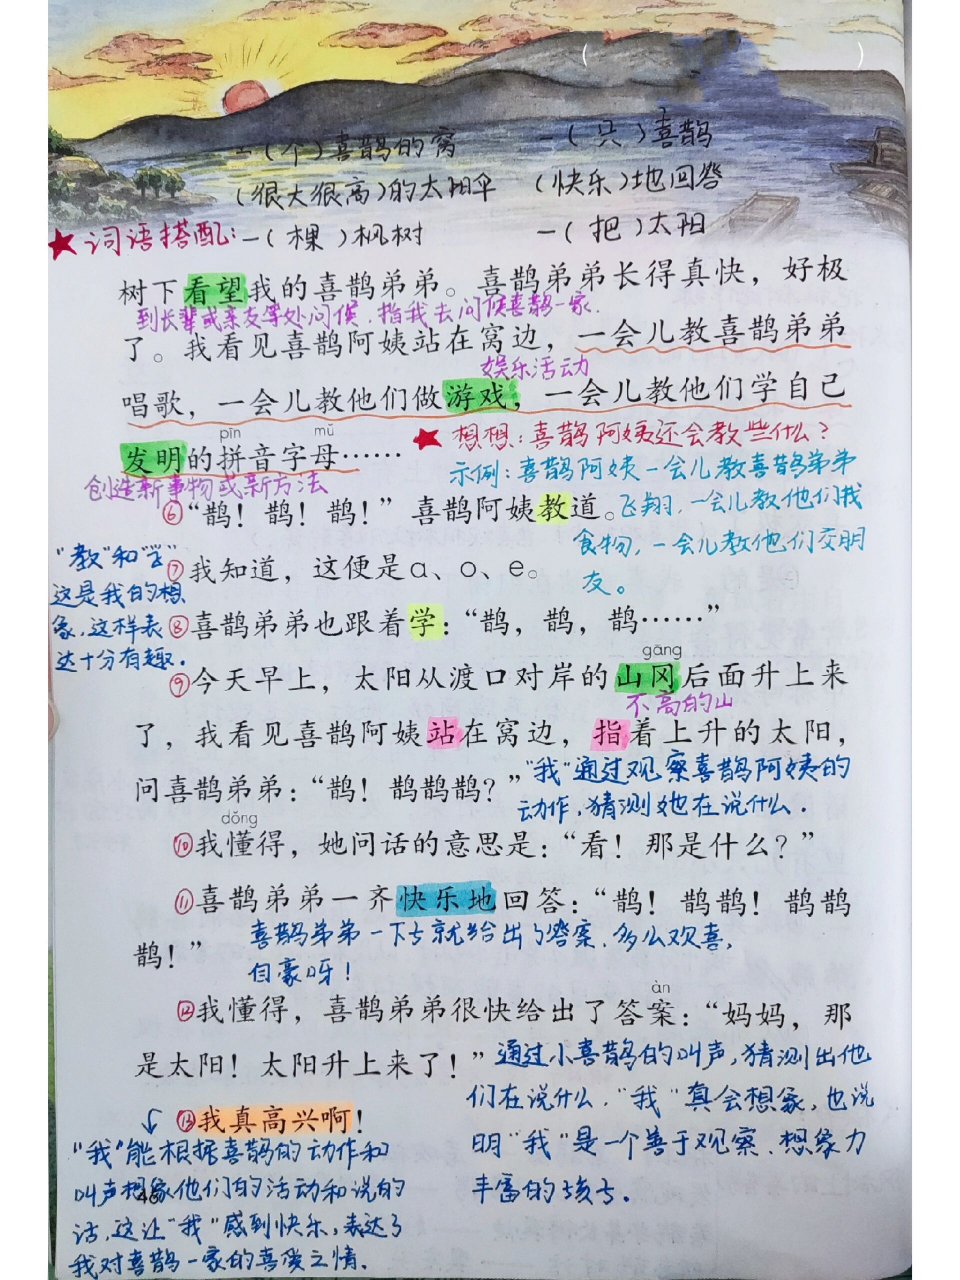 一(个)喜鹊的窝 一(只)喜鹊
(很大很高)的太阳伞 (快乐)地回答
★词语搭配:一(棵)枫树 一(把)太阳
树下看望我的喜鹊弟弟。喜鹊弟弟长得真快，好极
到长辈或亲友等处问候.指我去问候喜鹊一家.
了。我看见喜鹊阿姨站在窝边，一会儿教喜鹊弟弟
娱乐活动
唱歌，一会儿教他们做游戏，一会儿教他们学自己
pīn mǔ
★想想:喜鹊阿姨还会教些什么?
发明的拼音字母……
示例:喜鹊阿姨一会儿教喜鹊弟弟
飞翔,一会儿教他们找
食物,一会儿教他们交朋
友。
创造新事物或新方法
⑥“鹊！鹊！鹊！”喜鹊阿姨教道。
"教"和"学"
这是我的想
象,这样表
达十分有趣.
⑦我知道，这便是a、o、e。
⑧喜鹊弟弟也跟着学：“鹊，鹊，鹊……”
gāng
⑨今天早上，太阳从渡口对岸的山冈后面升上来
不高的山
了，我看见喜鹊阿姨站在窝边，指着上升的太阳，
问喜鹊弟弟：“鹊！鹊鹊鹊？”
"我"通过观察喜鹊阿姨的
动作,猜测她在说什么.
dǒng
⑩我懂得，她问话的意思是：“看！那是什么？”
⑪喜鹊弟弟一齐快乐地回答：“鹊！鹊鹊！鹊鹊
鹊！”
喜鹊弟弟一下子就给出了答案,多么欢喜,
自豪呀!
àn
⑫我懂得，喜鹊弟弟很快给出了答案：“妈妈，那
是太阳！太阳升上来了！”
通过小喜鹊的叫声,猜测出他
们在说什么."我"真会想象,也说
明"我"是一个善于观察、想象力
丰富的孩子.
⑬我真高兴啊！
"我"能根据喜鹊的动作和
叫声想象他们的活动和说的
话,这让"我"感到快乐,表达了
我对喜鹊一家的喜爱之情.